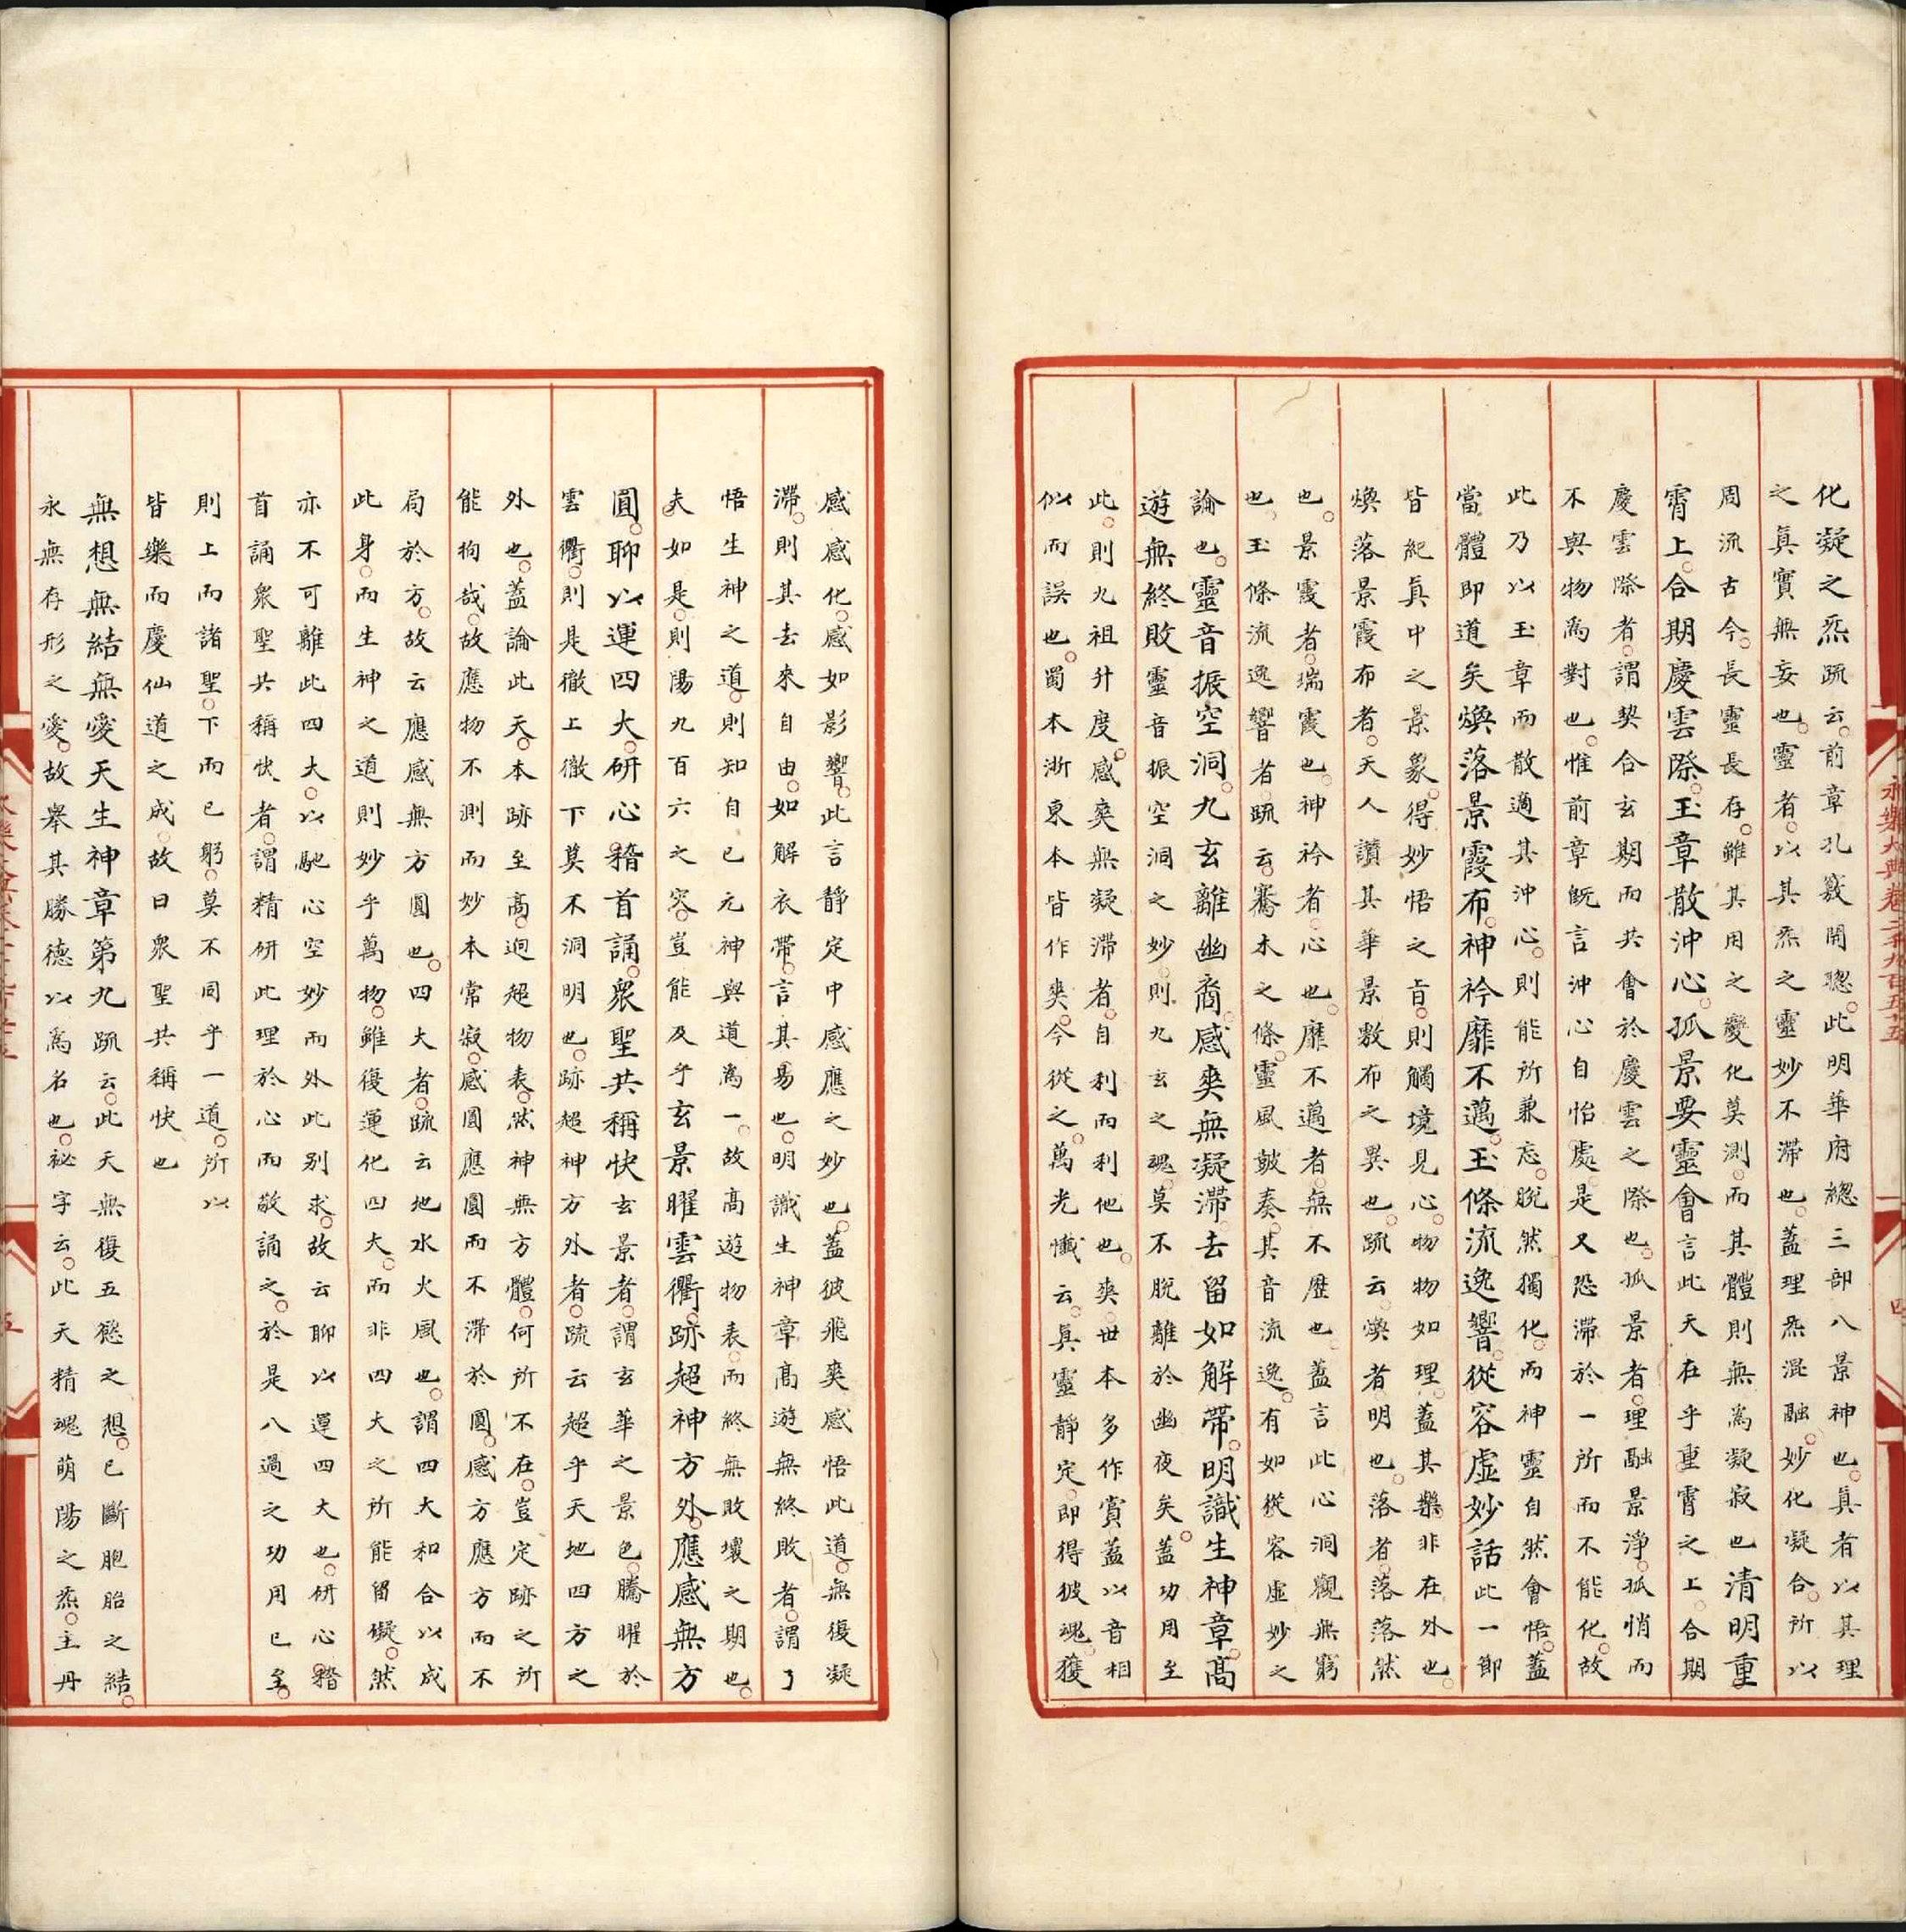 永樂大典卷二千九百五十五
四
化凝之炁疏云前章孔竅開聰此明華府總三部八景神也真者以其理
之真實無妄也靈者以其炁之靈妙不滯也蓋理炁混融妙化凝合所以
周流古今長靈長存雖其用之變化莫測而其體則無為凝寂也清明重
霄上合期慶雲際玉章散沖心孤景要靈會言此天在乎重霄之上合期
慶雲際者謂契合玄期而共會於慶雲之際也孤景者理融景淨孤悄而
不與物為對也惟前章旣言沖心自怡處是又恐滯於一所而不能化故
此乃以玉章而散適其沖心則能所兼忘脫然獨化而神靈自然會悟蓋
當體即道矣煥落景霞布神衿靡不邁玉條流逸響從容虛妙話此一節
皆紀真中之景象得妙悟之旨則觸境見心物物如理蓋其樂非在外也
煥落景霞布者天人讚其華景敷布之異也疏云煥者明也落者落落然
也景霞者瑞霞也神衿者心也靡不邁者無不歷也蓋言此心洞觀無窮
也玉條流逸響者疏云騫木之條靈風鼓奏其音流逸有如從容虛妙之
論也靈音振空洞九玄離幽裔感爽無凝滯去留如解帶明識生神章高
遊無終敗靈音振空洞之妙則九玄之魂莫不脫離於幽夜矣蓋功用至
此則九祖升度感爽無凝滯者自利而利他也爽世本多作賞蓋以音相
似而誤也蜀本浙東本皆作爽今從之萬光懺云真靈靜定即得彼魂獲
感感化感如影響此言靜定中感應之妙也蓋彼飛爽感悟此道無復凝
滯則其去來自由如解衣帶言其易也明識生神章高遊無終敗者謂了
悟生神之道則知自已元神與道為一故高遊物表而終無敗壞之期也
夫如是則陽九百六之灾豈能及乎玄景曜雲衢跡超神方外應感無方
圓聊以運四大研心稽首誦衆聖共稱快玄景者謂玄華之景色騰曜於
雲衢則是徹上徹下莫不洞明也跡超神方外者疏云超乎天地四方之
外也蓋論此天本跡至高逈超物表然神無方體何所不在豈定跡之所
能拘哉故應物不測而妙本常寂感圓應圓而不滯於圓感方應方而不
局於方故云應感無方圓也四大者疏云地水火風也謂四大和合以成
此身而生神之道則妙乎萬物雖復運化四大而非四大之所能留礙然
亦不可離此四大以馳心空妙而外此别求故云聊以運四大也研心稽
首誦衆聖共稱快者謂精研此理於心而敬誦之於是八過之功用已至
則上而諸聖下而已躬莫不同乎一道所以
皆樂而慶仙道之成故曰衆聖共稱快也
無想無結無愛天生神章第九疏云此天無復五慾之想已斷胞胎之結
永無存形之愛故舉其勝德以為名也祕字云此天精魂萌陽之炁主丹
五